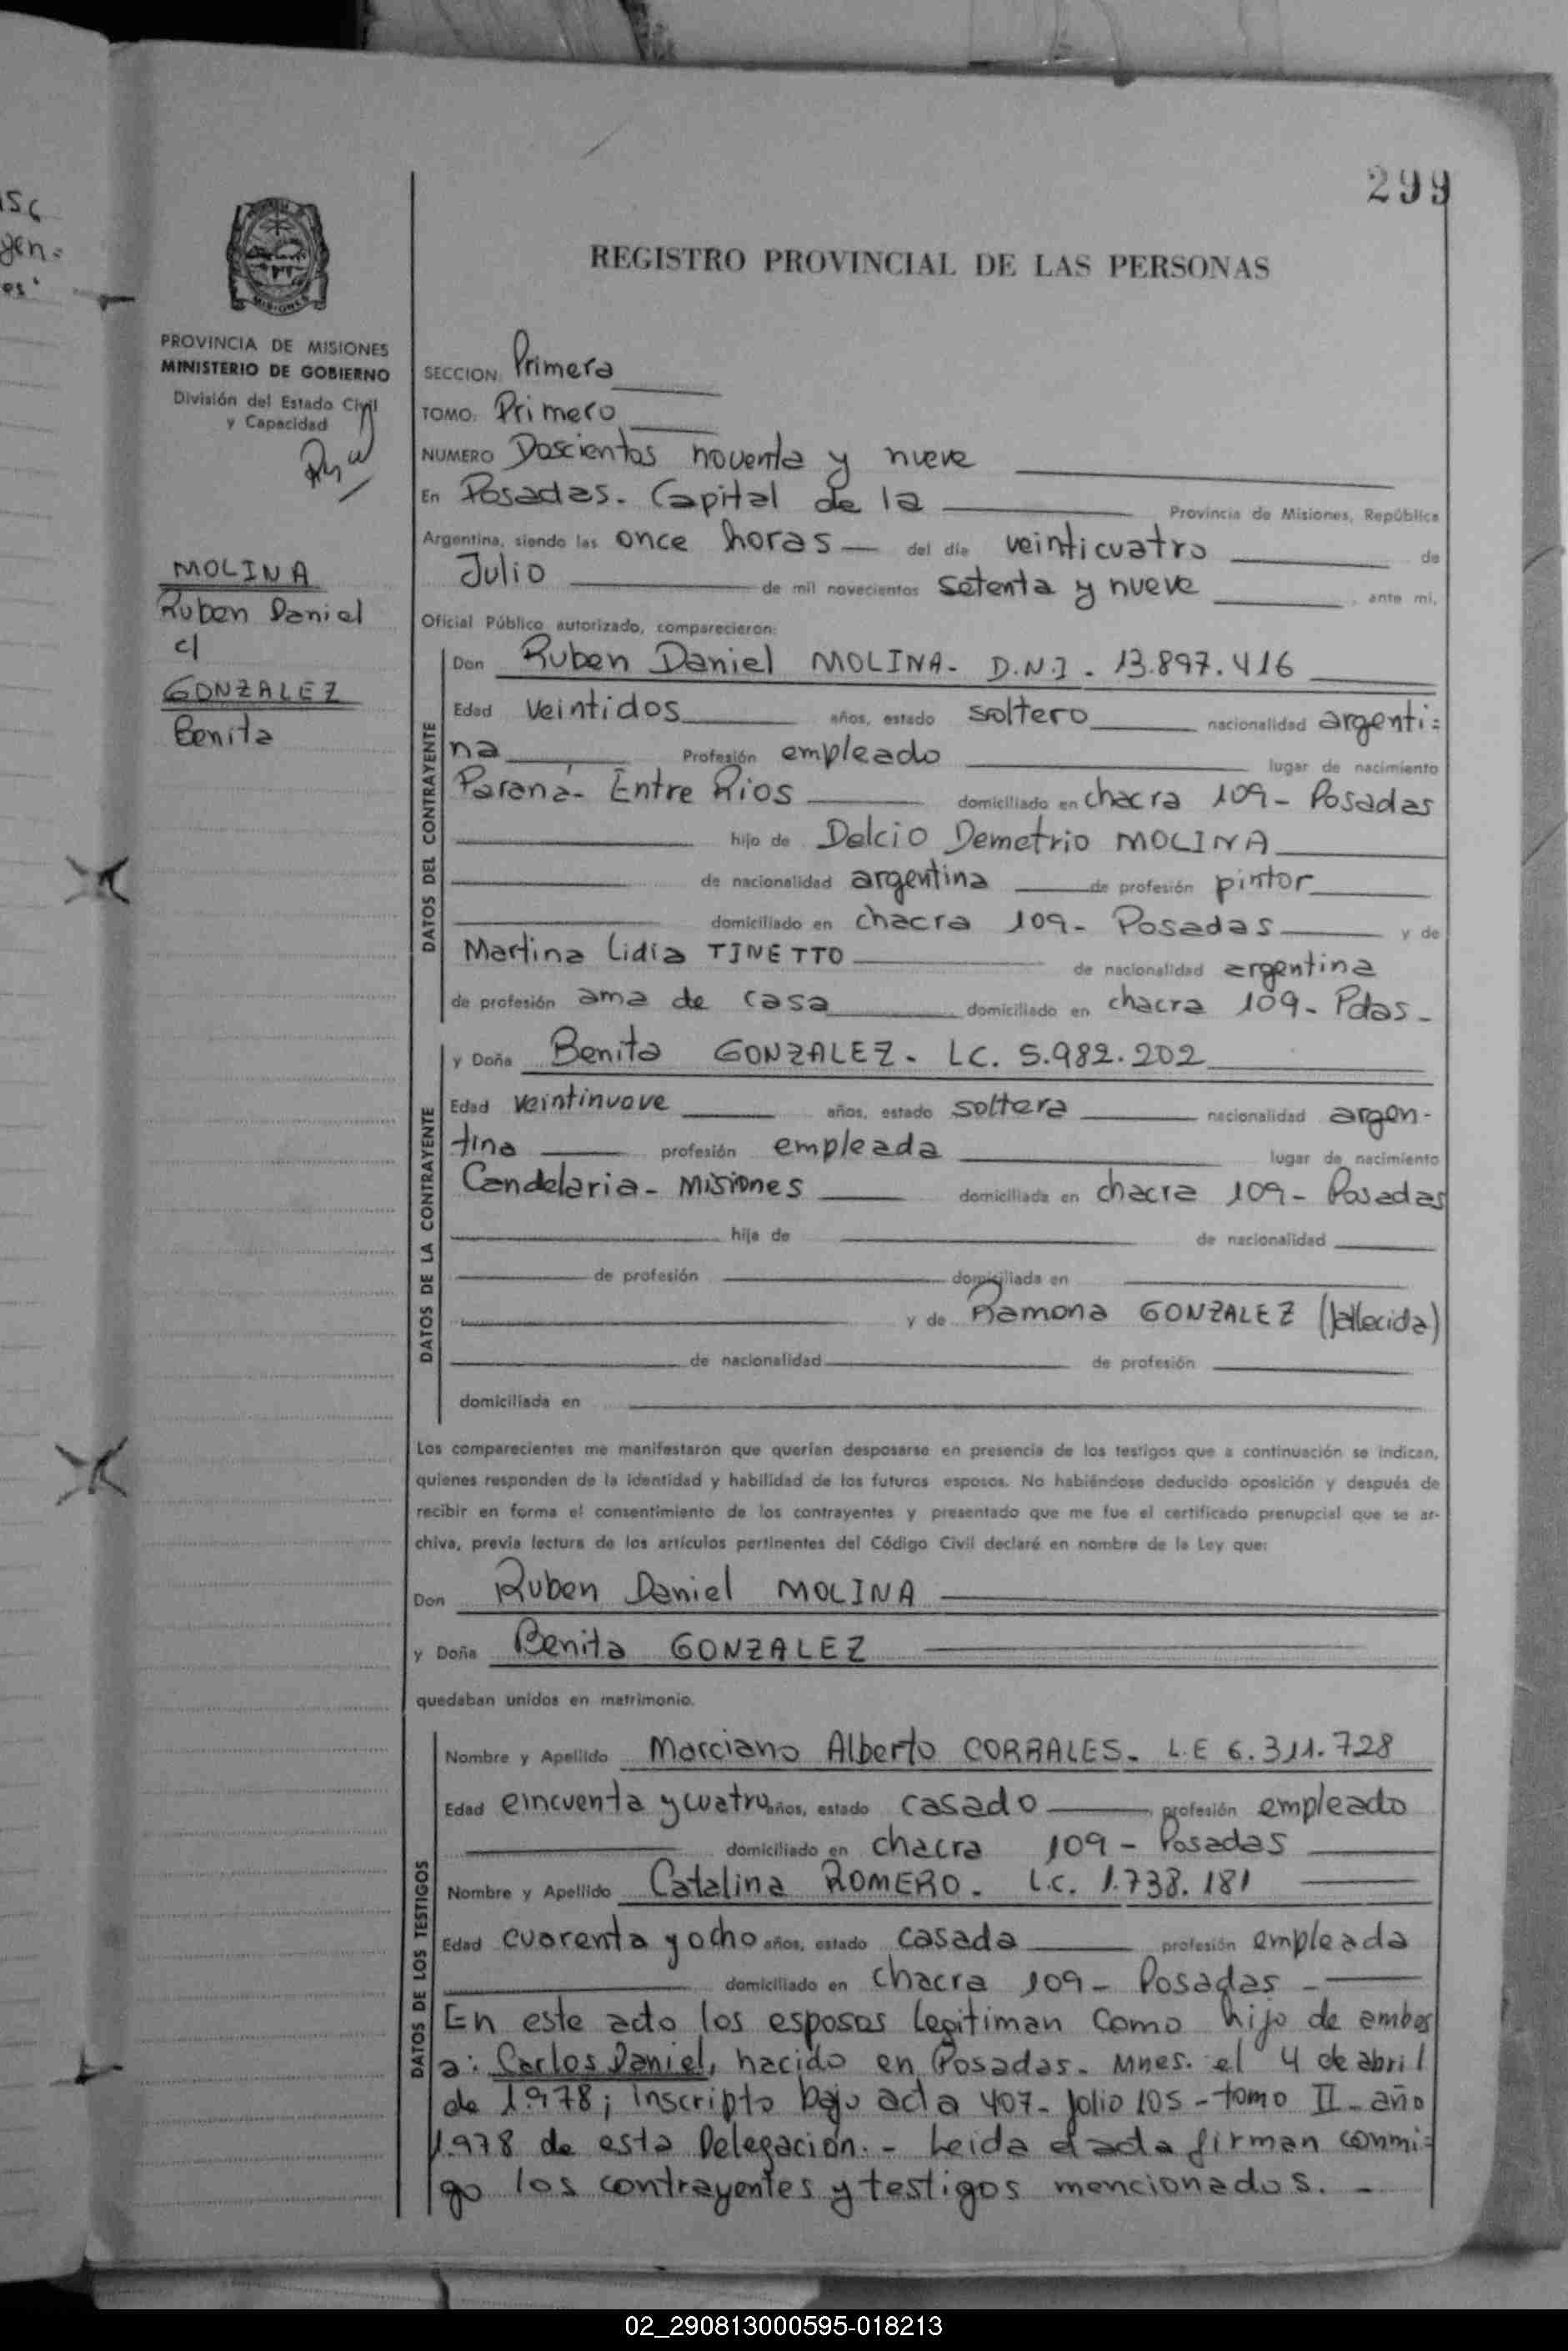 299
REGISTRO PROVINCIAL DE LAS PERSONAS
PROVINCIA DE MISIONES
MINISTERIO DE GOBIERNO
División del Estado Civil
y Capacidad
MOLINA
Ruben Daniel
c/
GONZALEZ
Benita
SECCION: Primera
TOMO: Primero
NUMERO Doscientos noventa y nueve
En Posadas. Capital de la Provincia de Misiones, República
Argentina, siendo las once horas — del día veinticuatro de
Julio de mil novecientos setenta y nueve, ante mi,
Oficial Público autorizado, comparecieron:
DATOS DEL CONTRAYENTE
Don Ruben Daniel MOLINA - D.N.I. 13.897.416
Edad veintidos años, estado soltero nacionalidad argenti=
na Profesión empleado lugar de nacimiento
Paraná - Entre Rios domiciliado en chacra 109 - Posadas
hijo de Delcio Demetrio MOLINA
de nacionalidad argentina de profesión pintor
domiciliado en chacra 109 - Posadas y de
Martina Lidia TINETTO de nacionalidad argentina
de profesión ama de casa domiciliado en chacra 109 - Pdas -
DATOS DE LA CONTRAYENTE
y Doña Benita GONZALEZ - LC. 5.982.202
Edad veintinueve años, estado soltera nacionalidad argen-
tina profesión empleada lugar de nacimiento
Candelaria - Misiones domiciliada en chacra 109 - Posadas
hija de de nacionalidad
de profesión domiciliada en
y de Ramona GONZALEZ (fallecida)
de nacionalidad de profesión
domiciliada en
Los comparecientes me manifestaron que querían desposarse en presencia de los testigos que a continuación se indican,
quienes responden de la identidad y habilidad de los futuros esposos. No habiéndose deducido oposición y después de
recibir en forma el consentimiento de los contrayentes y presentado que me fue el certificado prenupcial que se ar-
chiva, previa lectura de los artículos pertinentes del Código Civil declaré en nombre de la Ley que:
Don Ruben Daniel MOLINA
y Doña Benita GONZALEZ
quedaban unidos en matrimonio.
DATOS DE LOS TESTIGOS
Nombre y Apellido Marciano Alberto CORRALES - L.E 6.311.728
Edad cincuenta y cuatro años, estado casado profesión empleado
domiciliado en chacra 109 - Posadas
Nombre y Apellido Catalina ROMERO - L.C. 1.738.181
Edad cuarenta y ocho años, estado casada profesión empleada
domiciliado en chacra 109 - Posadas -
En este acto los esposos legitiman como hijo de ambos
a: Carlos Daniel, nacido en Posadas - Mnes. el 4 de abril
de 1.978; inscripto bajo acta 407 - folio 105 - tomo II - año
1.978 de esta Delegación. - Leida el acta firman conmi=
go los contrayentes y testigos mencionados. -
02_290813000595-018213